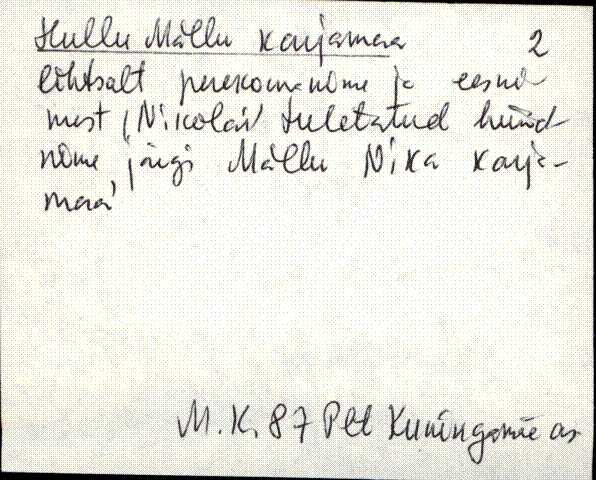 Hullu Mällu karjamaa 2
lihtsalt perekonnanime ja eesni-
mest (Nikolai) tuletatud hüüd-
nime järgi Mällu Nika karja-
maa
M. K. 87 Plt Kuningamäe as